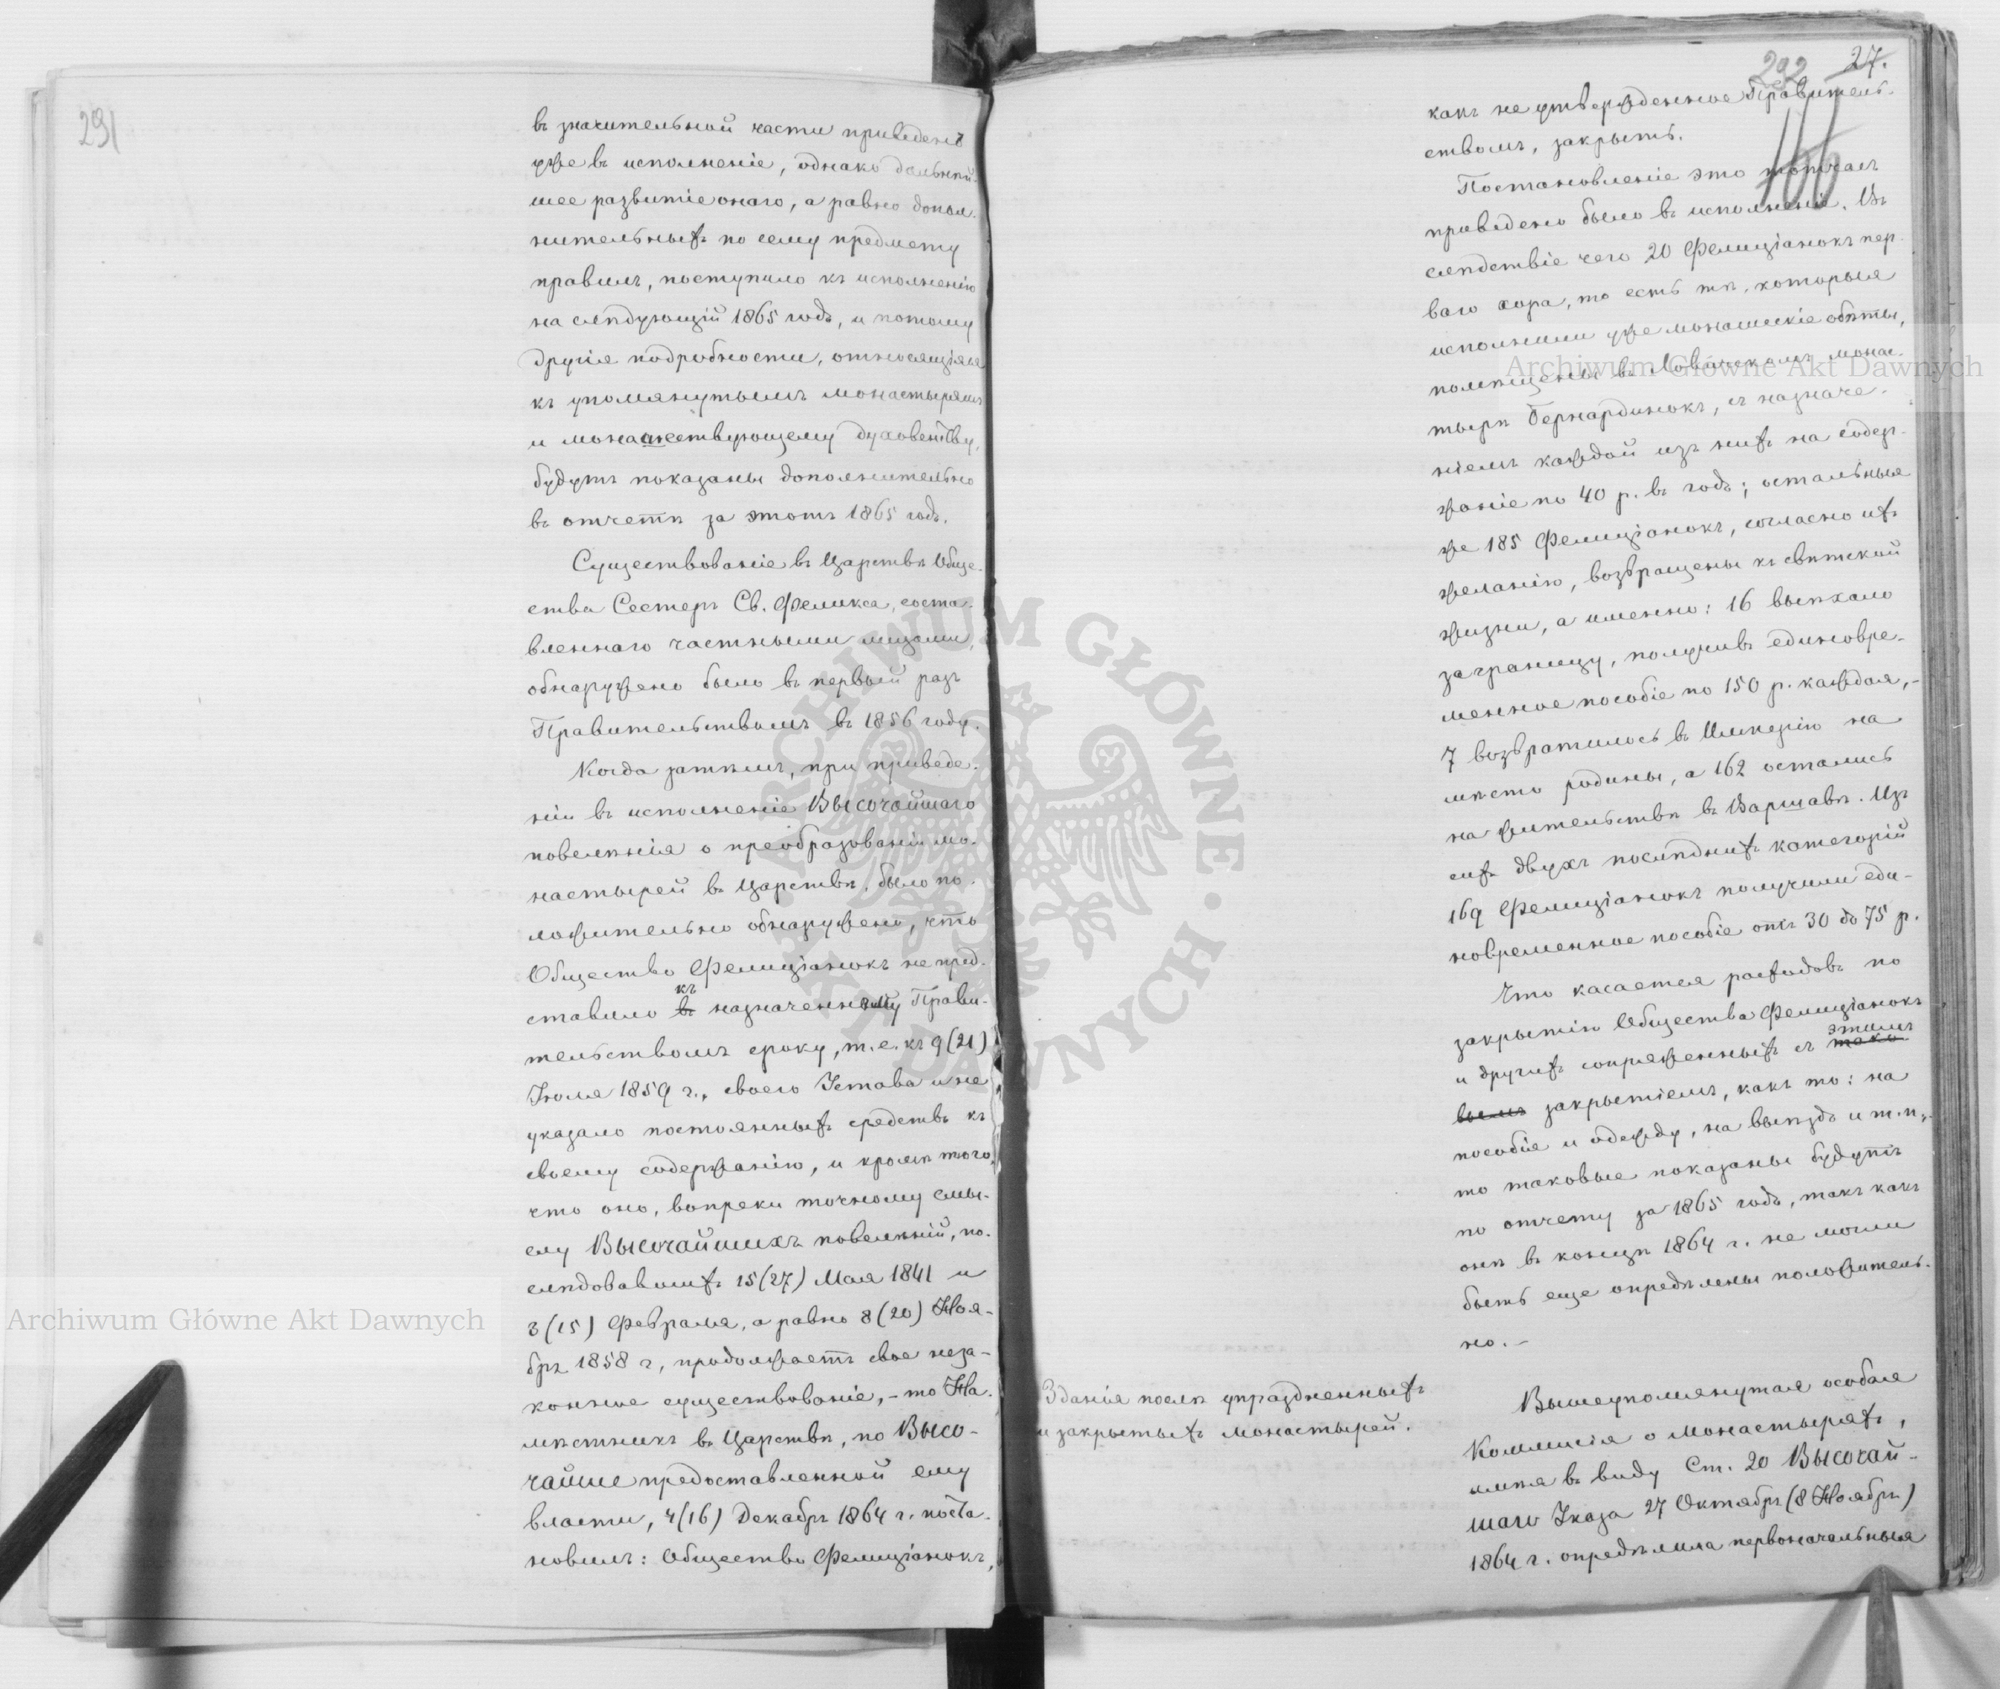 291
въ значительной части приведенъ
уже въ исполненіе, однако дальнѣй-
шее развитіе онаго, а равно допол-
нительныхъ по сему предмету
правилъ, поступило къ исполненію
на слѣдующій 1865 годъ, и потому
другія подробности, относящіяся
къ упомянутымъ монастырямъ
и монашествующему духовенству,
будутъ показаны дополнительно
въ отчетѣ за этотъ 1865 годъ.
Существованіе въ Царствѣ Обще-
ства Сестеръ Св. Феликса, соста-
вленнаго частными лицами,
обнаружено было въ первый разъ
Правительствомъ въ 1856 году.
Когда затѣмъ, при приведе-
ніи въ исполненіе Высочайшаго
повелѣнія о преобразованіи мо-
настырей въ Царствѣ, было по-
ложительно обнаружено, что
Общество Фелиціанокъ не пред-
къ
ставило въ назначенному Прави-
тельствомъ сроку, т.е. къ 9 (21)
Іюля 1859 г., своего Устава и не
указало постоянныхъ средствъ къ
своему содержанію, и кромѣ того,
что оно, вопреки точному смы-
слу Высочайшихъ повелѣній, по-
слѣдовавшихъ 15 (27) Мая 1841 и
3 (15) Февраля, а равно 8 (20) Ноя-
бря 1858 г., продолжаетъ свое неза-
конное существованіе, – то На-
мѣстникъ въ Царствѣ, по Высо-
чайше предоставленной ему
власти, 4 (16) Декабря 1864 г. поста-
новилъ: Общество Фелиціанокъ,
292 27.
какъ не утвержденное Правитель-
ствомъ, закрыть.
166
Постановленіе это тотчасъ
приведено было въ исполненіе. Въ
слѣдствіе чего 20 Фелиціанокъ пер-
ваго хора, то есть тѣ, которыя
исполнили уже монашескіе обѣты,
помѣщены въ Ловичскомъ монас-
тырѣ Бернардинокъ, съ назначе-
ніемъ каждой изъ нихъ на содер-
жаніе по 40 р. въ годъ; остальныя
же 185 Фелиціанокъ, согласно ихъ
желанію, возвращены къ свѣтской
жизни, а именно: 16 выѣхало
заграницу, получивъ единовре-
менное пособіе по 150 р. каждая, –
7 возвратилось въ Имперію на
мѣсто родины, а 162 остались
на жительствѣ въ Варшавѣ. Изъ
сихъ двухъ послѣднихъ категорій
169 Фелиціанокъ получили еди-
новременное пособіе отъ 30 до 75 р.
Что касается расходовъ по
закрытію Общества Фелиціанокъ
этимъ
и другихъ сопряженныхъ съ тако-
вымъ закрытіемъ, какъ то: на
пособіе и одежду, на выѣздъ и т.п.,
то таковые показаны будутъ
по отчету за 1865 годъ, такъ какъ
они въ концѣ 1864 г. не могли
быть еще опредѣлены положитель-
но. –
Зданія послѣ упраздненныхъ
и закрытыхъ монастырей.
Вышеупомянутая особая
Коммисія о монастыряхъ,
имѣя въ виду Ст. 20 Высочай-
шаго Указа 27 Октября (8 Ноября)
1864 г. опредѣлила первоначальныя
Archiwum Główne Akt Dawnych
Archiwum Główne Akt Dawnych
ARCHIWUM GŁÓWNE · AKT DAWNYCH ·